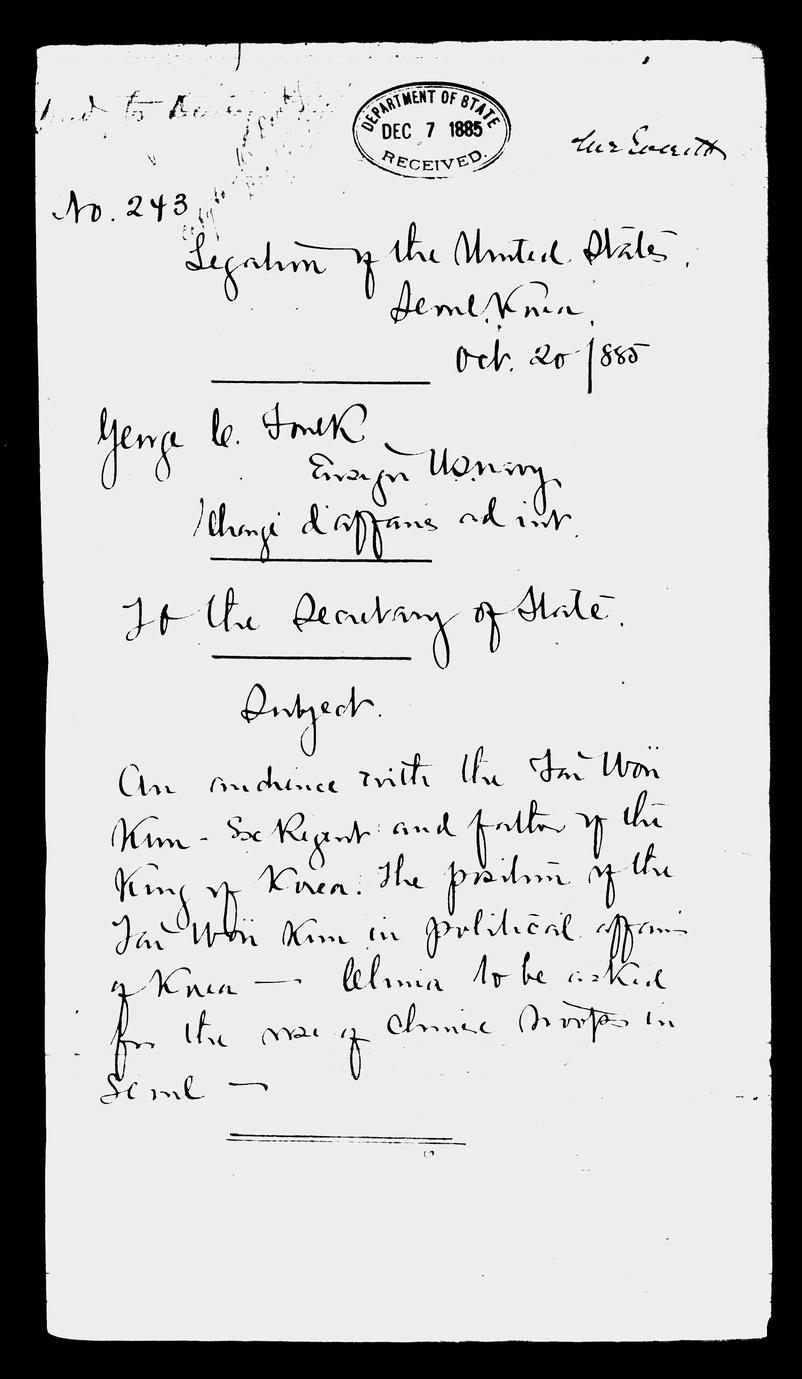 DEPARTMENT OF STATE
DEC 7 1885
RECEIVED.
Mr Everett
No. 243
Legation of the United States,
Seoul, Korea,
Oct. 20 1885
George C. Foulk
Ensign U.S. navy,
Chargé d'affaires ad int.
To the Secretary of State.
Subject.
An audience with the Tai Wön
Kun - Ex Regent and father of the
King of Korea. The position of the
Tai Wön Kun in political affairs
of Korea — China to be asked
for the use of Chinese troops in
Seoul —